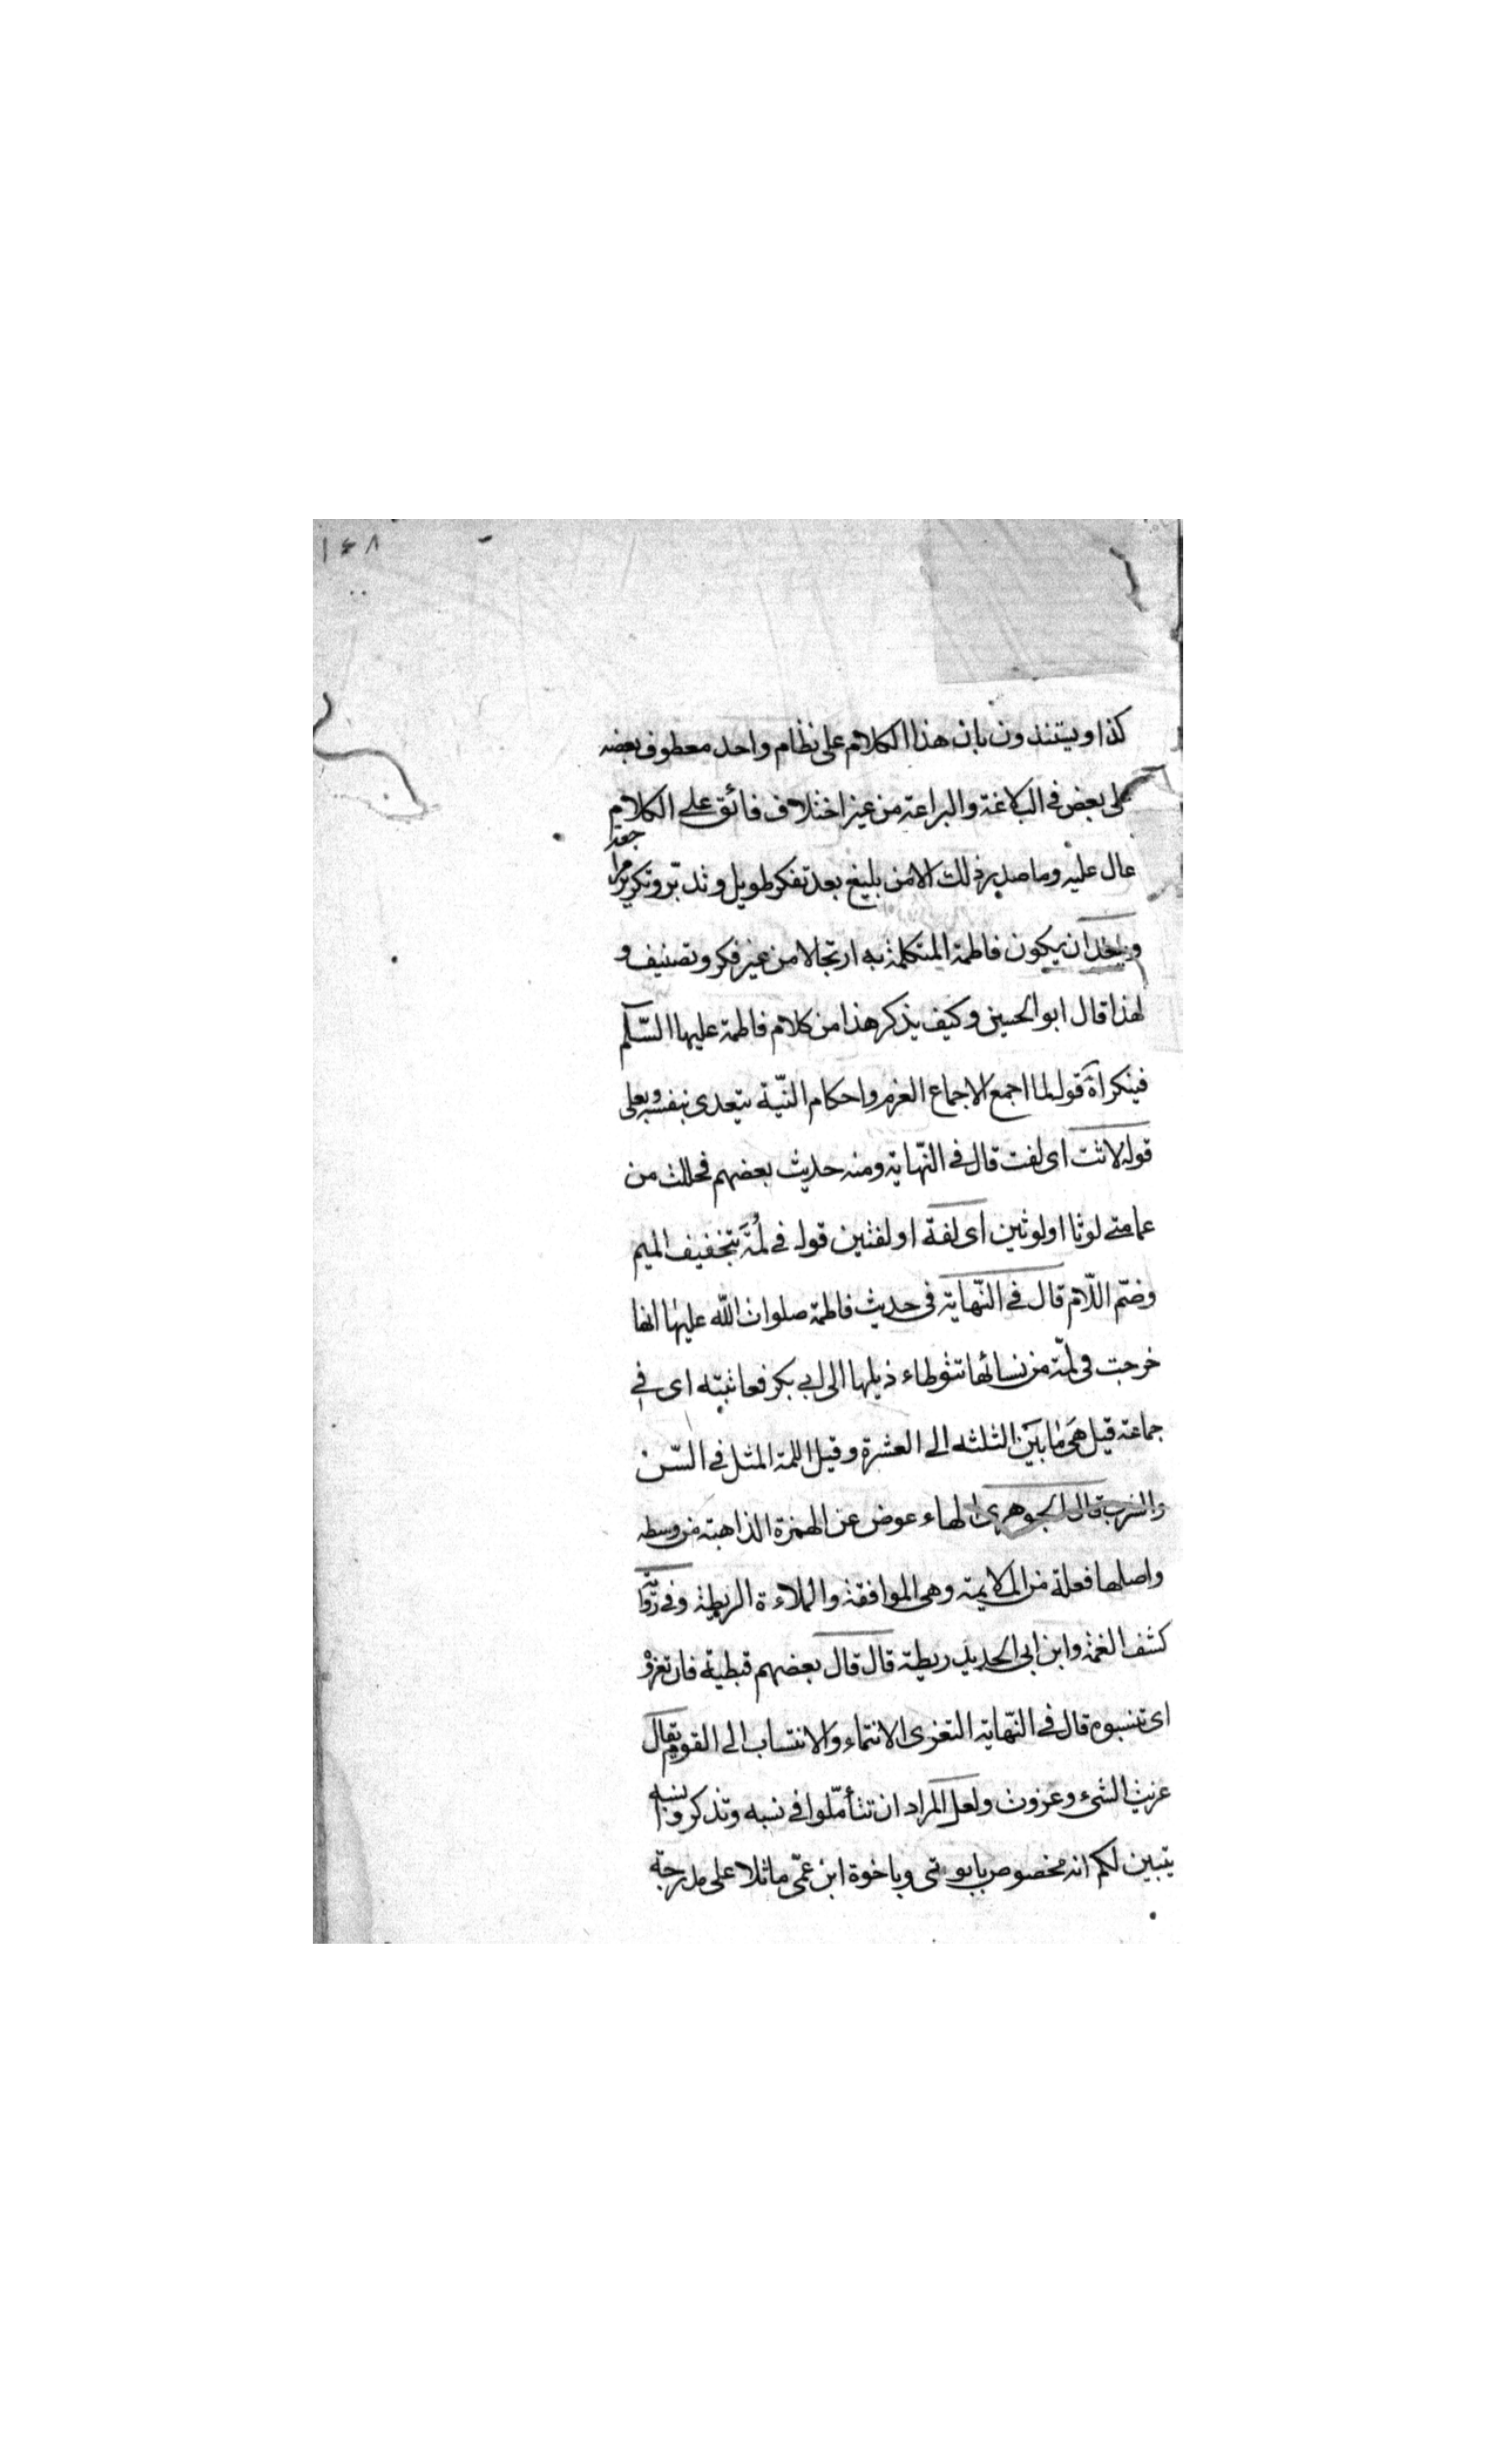 ١٤٨
كذا ويستندون بان هذا الكلام على نظام واحد معطوف بعضه
على بعض في البلاغة والبراعة من غير اختلاف فائق على الكلام
عال عليه وما صدر ذلك الا من بليغ بعد تفكر طويل وتدبّر وتكرير مرا جعة
ان يكون فاطمة المتكلمة به ارتجالا من غير فكر وتصنيف و
لهذا قال ابو الحسين وكيف يذكر هذا من كلام فاطمة عليها السّلم
فينكرانة قوله لما اجمع الاجماع العزم واحكام النيّة يتعدى بنفسه وبعلى
قوله لاثت اى لفت قال في النّهاية ومنه حديث بعضهم فحللت من
عمامتي لوثا او لوثين اى لفة او لفتين قوله في لُمَة بتخفيف الميم
وضمّ اللّام قال في النّهاية في حديث فاطمة صلوات اللّه عليها انها
خرجت في لمّة من نسائها تتوطاء ذيلها الى ابي بكر فعاتبته اى في
جماعة قيل هَى مٰا بَيَن الثلثه الى العشرة وقيل اللمة المثل في السّن
والترب قال الجوهرى الهاء عوض عن الهمزة الذاهبة من وسطه
واصلها فعلة من الملايمة وهى الموافقة والملاءة الريطة وفي رواية
كشف الغمة وابن ابى الحديد ريطة قال قال بعضهم قبطية فان تعزوْ
اى تنسبوه قال في النّهاية التعزى الانتماء والانتساب الى القوم يقال
عزيت الشىء وعزوت ولعل المراد ان تتأمّلوا في نسبه وتذكروا نسبه
يتبين لكم انه مخصوص بابوتى وباخوة ابن عمّى ماثلا على مدرجة